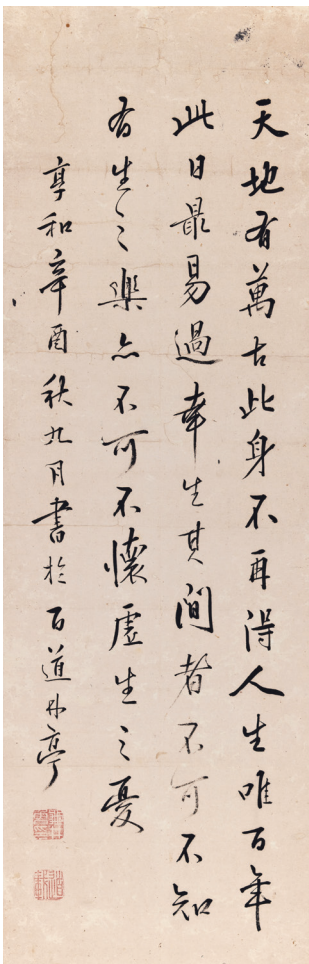 天地有萬古此身不再得人生唯百年
此日最易過幸生其間者不可不知
有生之樂亦不可不懷虛生之憂
享和辛酉秋九月書於百道林亭